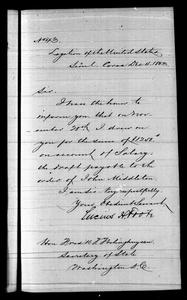 No 43.
Legation of the United States
Seoul Corea Dec 11 188
Sir
I have the honor to
inform you that on Nov
ember 30th I drew on
you for the sum of $1250
on account of Salary
the draft payable to the
order of John Middleton
I am sir very respectfully
Your Obedient Servant
Lucius H Foote
Hon Fred K T Frelinghuysen
Secretary of State
Washington D.C.